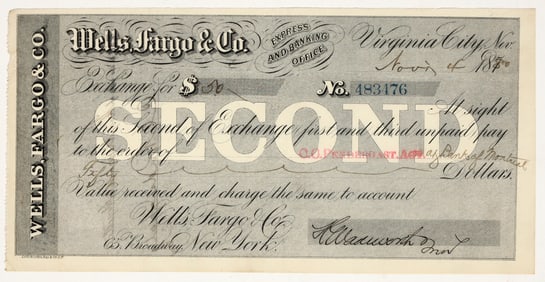 WELLS, FARGO & CO.
Wells, Fargo & Co.
EXPRESS AND BANKING OFFICE.
Virginia City, Nev.
Novr 4 18
Exchange for $ 50
No. 483476
SECOND
At sight
of this Second of Exchange, first and third unpaid pay
to the order of C.C. PENDERGAST, AGT. Bank of Montreal
Fifty Dollars.
Value received and charge the same to account
Wells, Fargo & Co.
65, Broadway, New York.